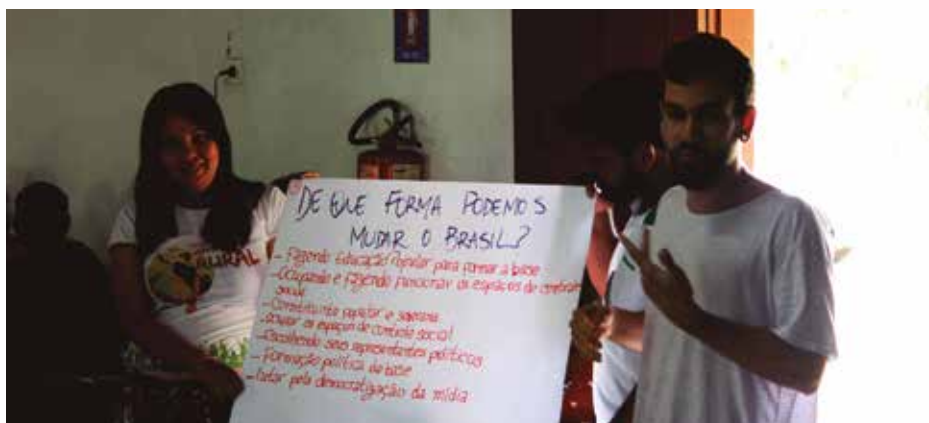 DE QUE FORMA PODEMOS
MUDAR O BRASIL?
- Fazendo Educação Popular para formar a base
- Ocupando e fazendo funcionar os espaços de controle
social
- Constituinte popular e soberana
- ocupar os espaços de controle social
- Escolhendo seus representantes políticos
- Formação política da base
- Lutar pela democratização da mídia
RURAL